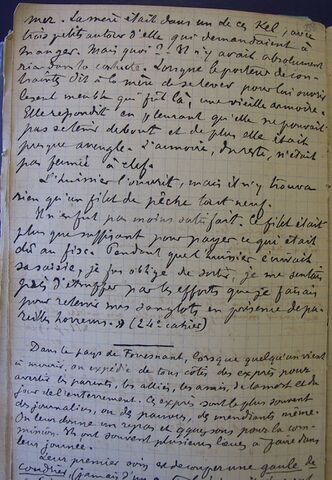 mer. La mère était dans un de ces Kel, avec
trois petits autour d'elle qui demandaient à
manger. Mais quoi? Il n'y avait absolument
rien dans la cahute. Lorsque le porteur de con-
traintes dit à la mère de se lever pour lui ouvrir
le seul meuble qui fût là, une vieille armoire.
Elle répondit en pleurant qu'elle ne pouvait
pas se tenir debout et de plus elle était
presque aveugle. L'armoire, du reste, n'était
pas fermée à clef.
L'huissier l'ouvrit, mais il n'y trouva
rien qu'un filet de pêche tout neuf.
Il n'en fut pas moins satisfait. Ce filet était
plus que suffisant pour payer ce qui était
dû au fisc. Pendant que l'huissier écrivait
sa saisie, je fus obligé de sortir, je me sentais
près d'étouffer par les efforts que je faisais
pour retenir mes sanglots en présence de pa-
reilles horreurs. » (24e cahier)
Dans le pays de Fouesnant, lorsque quelqu'un vient
à mourir, on expédie de tous côtés des exprès pour
avertir les parents, les alliés, les amis, de la mort et du
jour de l'enterrement. Ces exprès sont le plus souvent
des journaliers, ou des pauvres, des mendiants même.
On leur donne un repas et quelques sous pour la com-
mission. Ils ont souvent plusieurs lieues à faire dans
leur journée.
Leur premier soin est de couper une gaule de
coudrier (jamais d'un